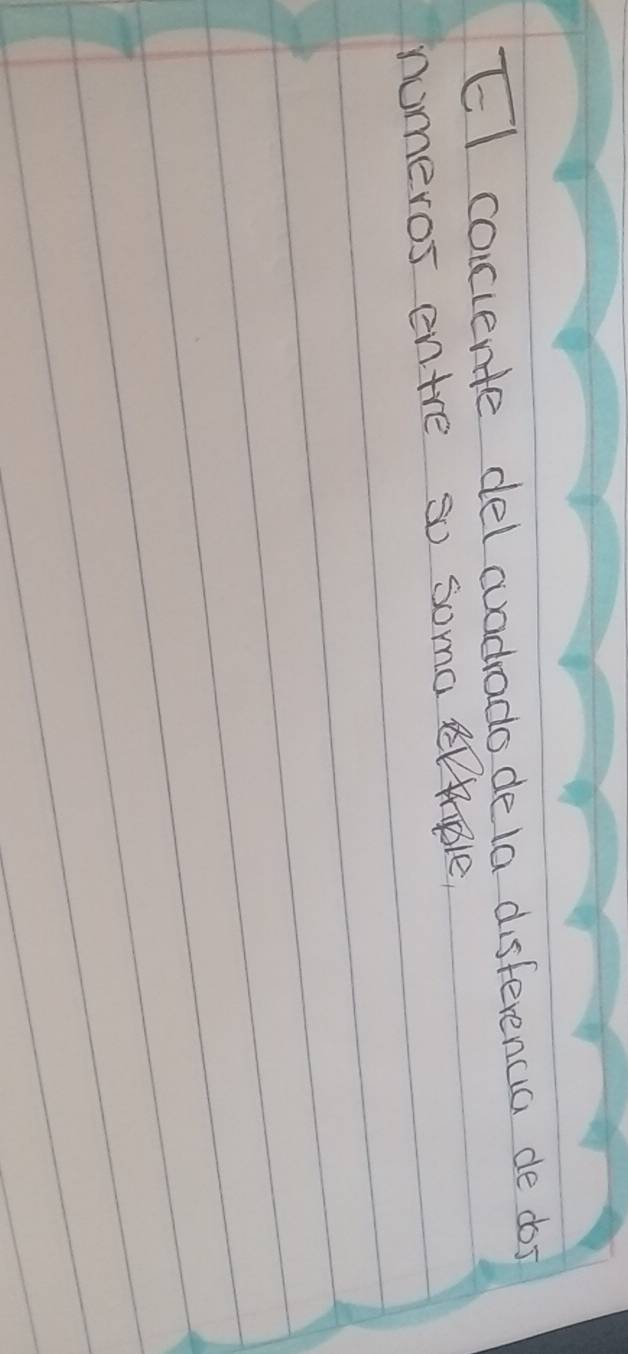 El coiciente del cuadrado de la disferencia de dos
numeros entre su suma el triple,